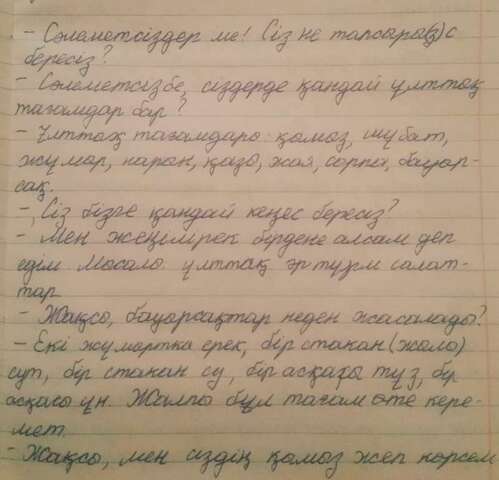 - Сәлеметсіздер ме! Сіз не тапсыра(з)с
бересіз?
- Сәлеметсізбе, сіздерде қандай ұлттық
тағамдар бар?
- Ұлттық тағамдары қымыз, шұбат,
жұмыр, нарын, қазы, жая, сорпа, бауыр-
сақ.
- Сіз бізге қандай кеңес бересіз?
- Мен жеңілірек бірдеңе алсам деп
едім. Мысалы ұлттық әр түрлі салат-
тар
- Жақсы, бауырсақтар неден жасалады?
- Екі жұмыртка ерек, бір стакан (жылы)
сүт, бір стакан су, бір асқағы тұз, бір
асқасы ұн. Жалпы бұл тағам өте кере-
мет.
- Жақсы, мен сіздің қымыз жеп көрсем